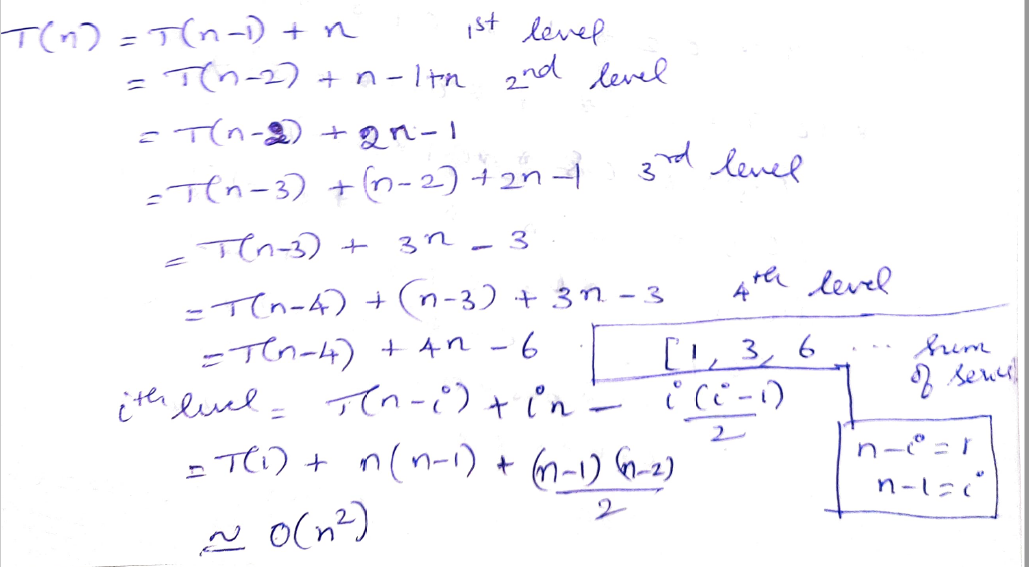 T(n) = T(n-1) + n 1st level
= T(n-2) + n-1+n 2nd level
= T(n-2) + 2n-1
= T(n-3) + (n-2) + 2n-1 3rd level
= T(n-3) + 3n - 3
= T(n-4) + (n-3) + 3n - 3 4th level
= T(n-4) + 4n - 6 [1, 3, 6 ... sum of series
ith level = T(n-i) + in - i(i-1)/2
n-i=1
= T(1) + n(n-1) + (n-1)(n-2)/2
n-1=i
≈ O(n²)